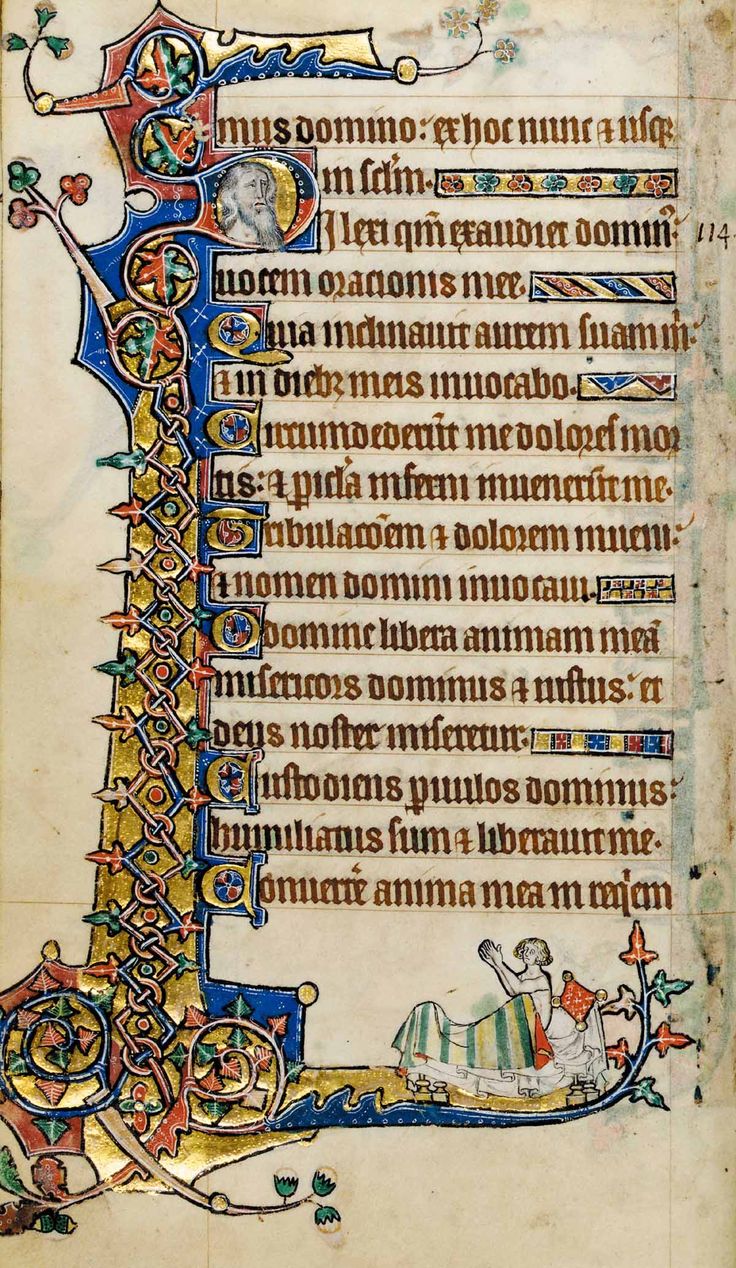 mus domino: ex hoc nunc ⁊ usqꝫ
in sclm̄.
Dilexi qm̄ exaudiet domin᷒:
114
uocem oracionis mee.
Quia inclinauit aurem suam m̄:
⁊ in diebꝫ meis inuocabo.
Circumdederūt me dolores mor
tis: ⁊ ꝑicl̄a inferni inuenerūt me.
Tribulacōem ⁊ dolorem inueni:
⁊ nomen domini inuocaui.
O domine libera animam meā
misericors dominus ⁊ iustus: et
deus noster miseretur.
Custodiens ꝑuulos dominus:
humiliatus sum ⁊ liberauit me.
Conuertēe anima mea in req̇em